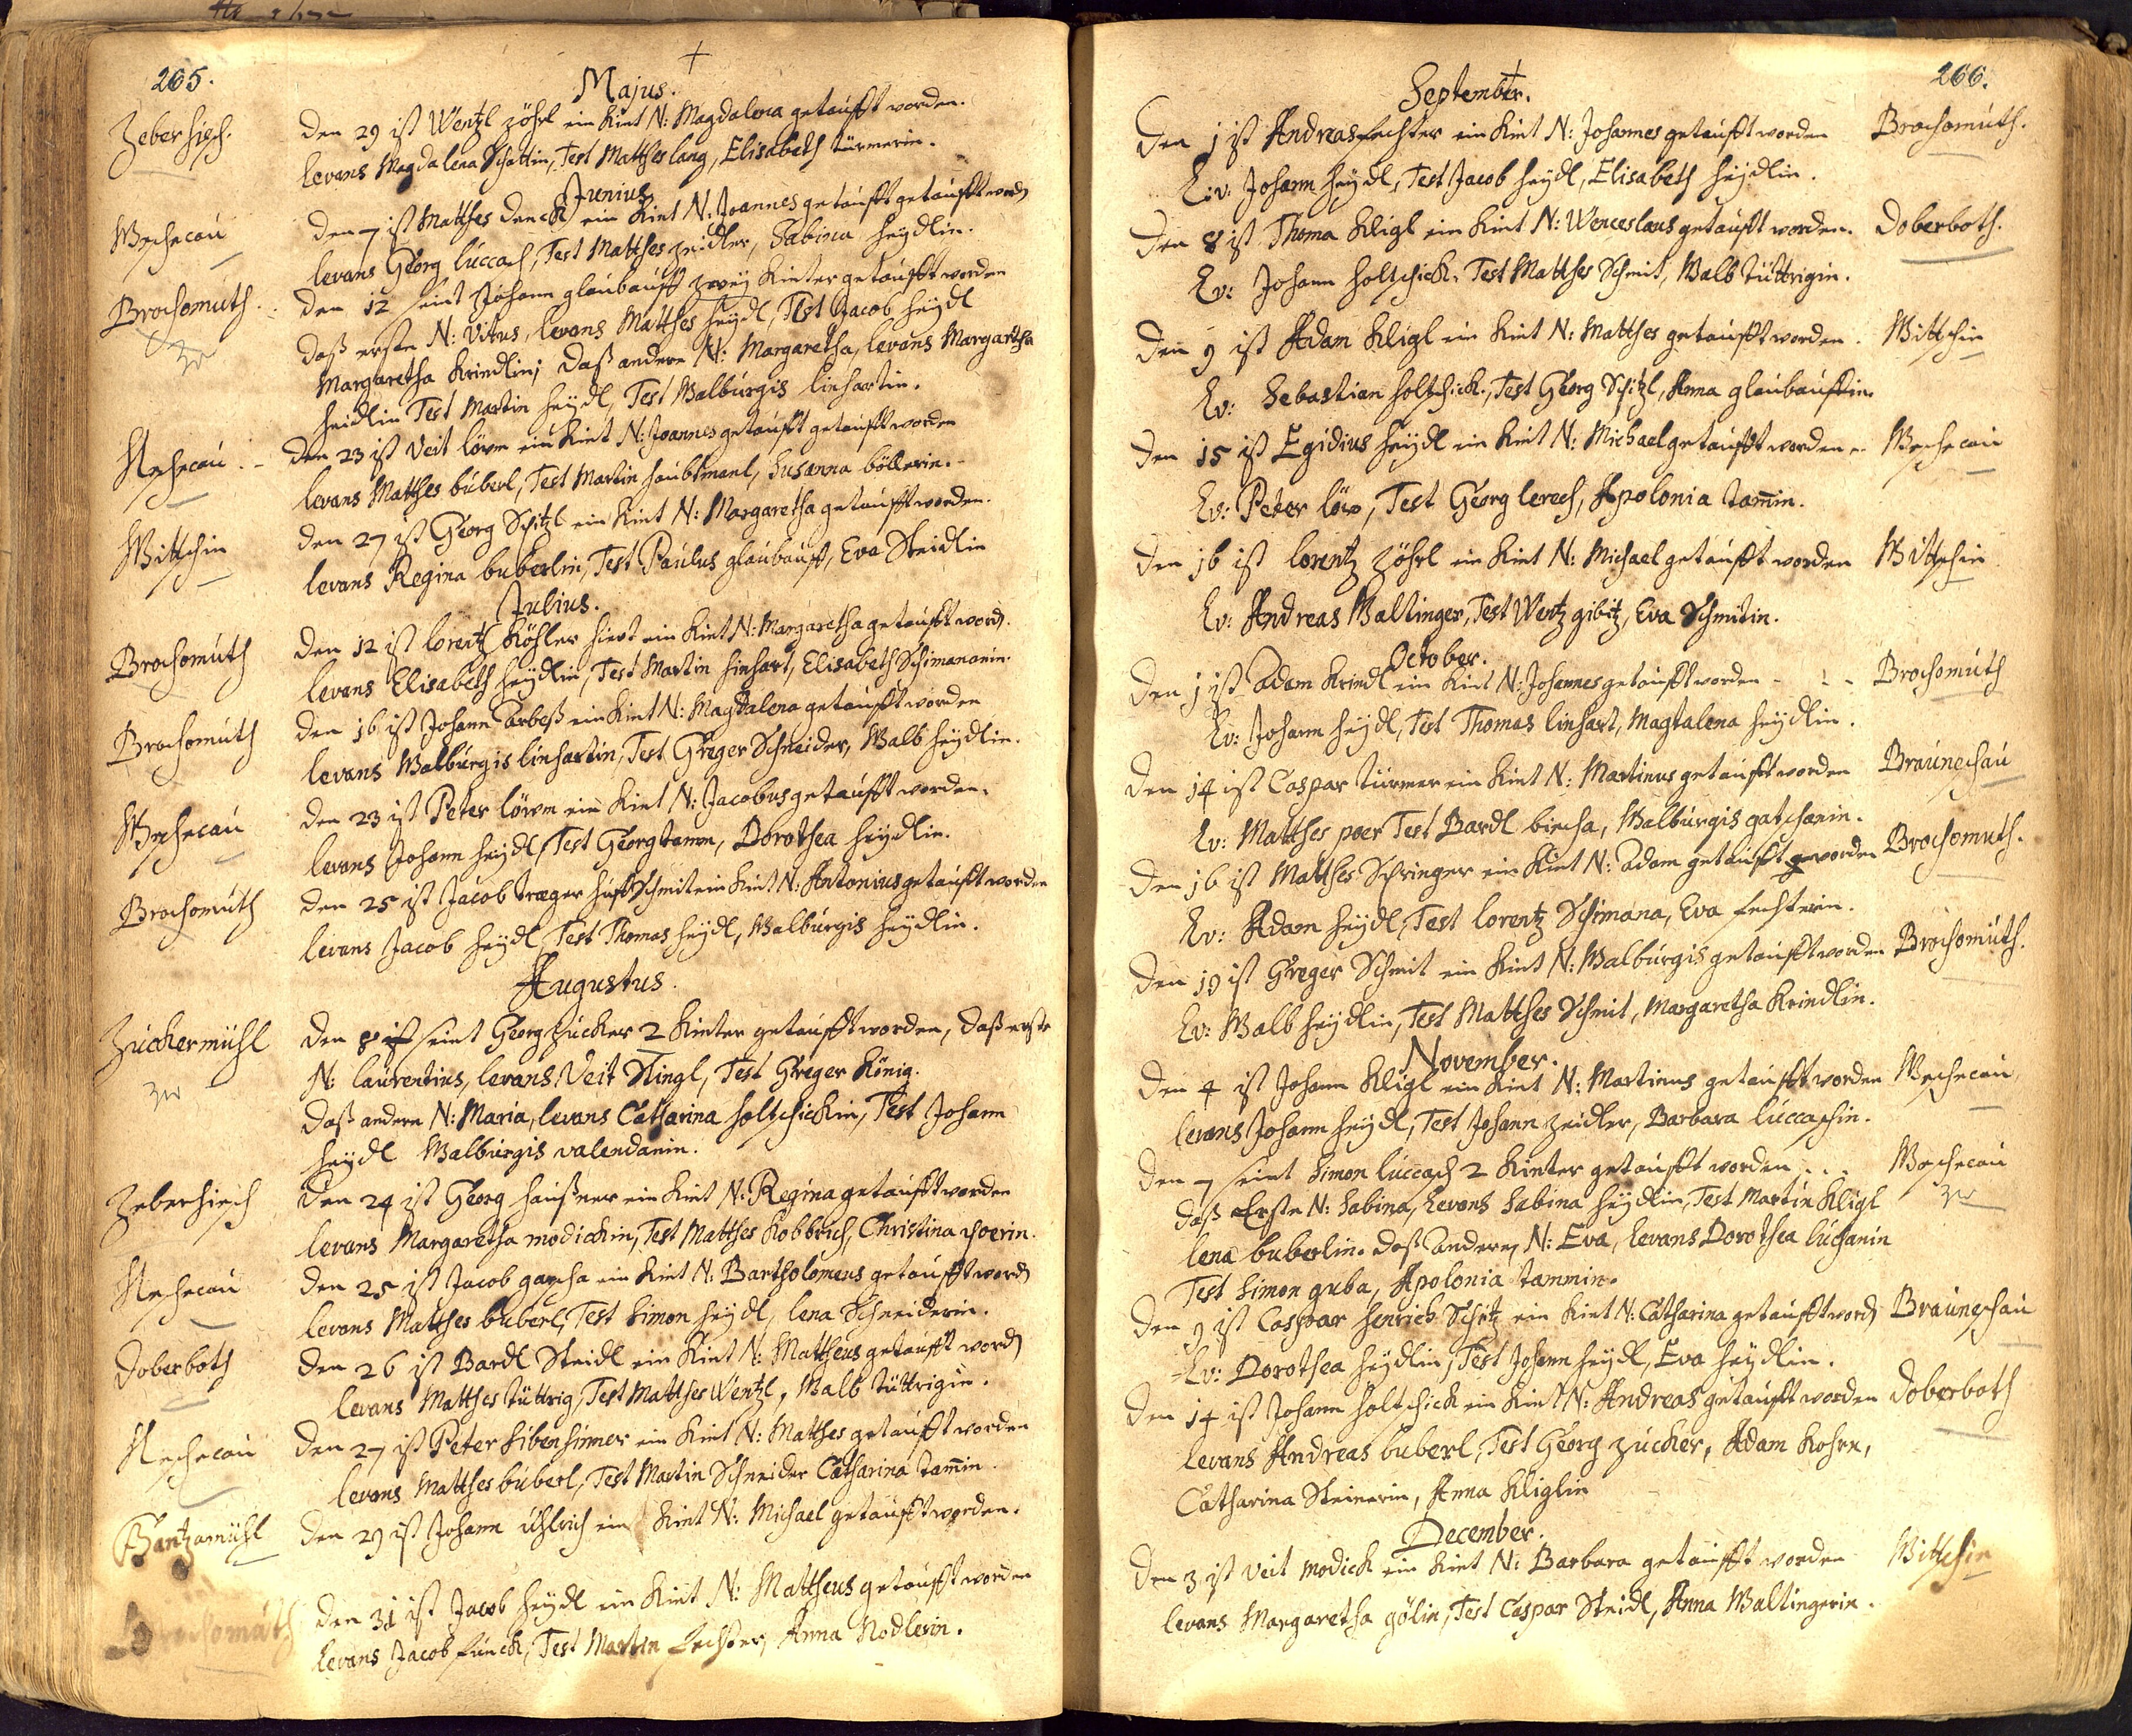 205.
Majus.
Zeberhisch. Den 29 ist Wentzl zöhrl ein Kint N: Magdalena getaufft worden.
levans Magdalena Schattin, Test Matthes lang, Elisabeth türmerin.
Junius
Wechecau Den 7 ist Matthes denck ein Kint N: Joannes getaufft getaufft word
levans Georg luccach, Test Matthes zeidler, Sabina heydlin.
Brochomuth. Den 12 seint Johann glaubauff zwey Kinter getaufft worden
daß erste N: Vitus, levans Matthes heydl, Test Jacob heydl
Margaretha Krindlin, daß andere N: Margaretha, levans Margartha
heidlin Test Martin heydl, Test Walburgis linhartin.
Nechecau. Den 23 ist Veit löwm ein Kint N: Joannes getaufft getaufft worden
levans Matthes buberl, Test Martin haubtmanl, Susanna böllerin.
Wittschin Den 27 ist Georg Schitzl ein Kint N: Margaretha getaufft worden.
levans Regina buberlin, Test Paulus glaubauff, Eva Steidlin
Julius.
Brochomuth Den 12 ist lorentz Köhler hiert ein Kint N: Margaretha getaufft word.
levans Elisabeth heydlin, Test Martin linhart, Elisabeth Schimananin.
Brochomuth Den 16 ist Johann Parbeß ein Kint N: Magdalena getaufft worden
levans Walburgis linhartin, Test Greger Schneider, Walb heydlin.
Wechecau Den 23 ist Peter löwm ein Kint N: Jacobus getaufft worden.
levans Johann heydl, Test Georg tamm, Dorothea heydlin.
Brochomuth Den 25 ist Jacob træger huffschmit ein Kint N: Antonius getaufft worden
levans Jacob heydl, Test Thomas heydl, Walburgis heydlin.
Augustus.
Zuckermühl Den 8 ist seint Georg zucker 2 Kinter getaufft worden, daß erste
N: laurentius, levans Veit Stingl, Test Greger König.
Daß andere N: Maria, levans Catharina holtschickin, Test Johann
heydl Walburgis valendanin.
Zeberhisch Den 24 ist Georg haußner ein Kint N: Regina getaufft worden
levans Margaretha modickin, Test Matthes Kobbrich, Christina poerin.
Nechecau Den 25 ist Jacob gaycha ein Kint N: Bartholomeus getaufft word
levans Matthes buberl, Test Simon heydl, lena Schneiderin.
Doberboth Den 26 ist Bardl Steidl ein Kint N: Mattheus getaufft word
levans Matthes tüttrig, Test Matthes Wentzl, Walb tüttrigin.
Nechecau Den 27 ist Peter Sibenhinner ein Kint N: Matthes getaufft worden
levans Matthes buberl, Test Martin Schneider Catharina tamin.
Gantzamühl Den 29 ist Johann ühlrich ein Kint N: Michael getaufft worden.
Brochomuth Den 31 ist Jacob heydl ein Kint N: Mattheus getaufft worden
levans Jacob funck, Test Martin fechter, Anna Nodlerin.
206.
September.
Den 1 ist Andreas fechter ein Kint N: Johannes getaufft worden Brochomuth.
Lev: Johann heydl, Test Jacob heydl, Elisabeth heydlin.
Den 8 ist Thoma Kligl ein Kint N: Wenceslaus getaufft worden. Doberboth.
Lev: Johann holtschick, Test Matthes Schmit, Walb tüttrigin.
Den 9 ist Adam Kligl ein Kint N: Matthes getaufft worden. Wittschin
Lev: Sebastian holtschick, Test Georg Schitzl, Anna glaubauffin.
Den 15 ist Egidius heydl ein Kint N: Michael getaufft worden. Wechecau
Lev: Peter löw, Test Georg lerech, Apolonia tamin.
Den 16 ist lorentz zöhrl ein Kint N: Michael getaufft worden Wittschin
Lev: Andreas Waltinger, Test Wentz gibitz, Eva Schmitin.
October.
Den 1 ist Adam Krindl ein Kint N: Johannes getaufft worden Brochomuth
Lev: Johann heydl, Test Thomas linhart, Magtalena heydlin.
Den 14 ist Caspar türmer ein Kint N: Martinus getaufft worden Brauneschau
Lev: Matthes poer Test Bardl biecha, Walburgis gatschanin.
Den 16 ist Matthes Springer ein Kint N: Adam getaufft worden Brochomuth.
Lev: Adam heydl, Test lorentz Schimana, Eva fechterin.
Den 19 ist Greger Schmit ein Kint N: Walburgis getaufft worden Brochomuth.
Lev: Walb heydlin, Test Matthes Schmit, Margaretha Krindlin.
November.
Den 4 ist Johann Kligl ein Kint N: Martinus getaufft worden Wechecau
levans Johann heydl, Test Johann zeidler, Barbara luccachin.
Den 7 seint Simon luccach 2 Kinter getaufft worden... Wechecau
daß Erste N: Sabina, levans Sabina heydlin, Test Martin Kligl
lena buberlin. daß andere, N: Eva, levans Dorothea luchanin
Test Simon guba, Apolonia tammin.
Den 9 ist Caspar henrich Schitz ein Kint N: Catharina getaufft word Brauneschau
Lev: Dorothea heydlin, Test Johann heydl, Eva heydlin.
Den 14 ist Johann holtschick ein Kint N: Andreas getaufft worden Doberboth
levans Andreas buberl, Test Georg zucker, Adam Kohrn,
Catharina Steinerin, Anna Kliglin
December.
Den 3 ist Veit modick ein Kint N: Barbara getaufft worden Wittschin
levans Margaretha gölin, Test Caspar Steidl, Anna Waltingerin.